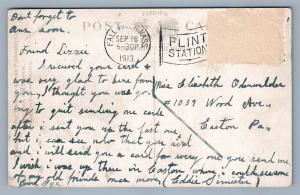 Dont forget to
Ans soon.
POST CA
FALL MASS.
SEP 16
9:30P
1913
FLINT
STATION
Friend Lizzie
I received your card &
was very glad to hear from
you I thought you was going
to quit sending me cards
after i sent you up the last one,
but i can see now that you aint
and i will send you a card for every one you send me
I wish i was up there in Easton when i could see some
of my old friends once more
Good Bye
Eddie
Miss Elizabeth
#1039 Wood Ave,
Easton
Pa